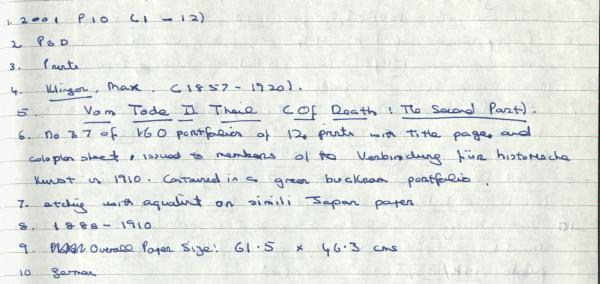 1. 2001 P10 (1 - 12)
2 P&D
3. Prints
4. Klinger, Max. (1857 - 1920).
5. Vom Tode II Theil (Of Death: The Second Part).
6. No 37 of 160 portfolios of 12 prints with title page, and
colophon sheet, issued to members of the Verbindung für historische
Kunst in 1910. Contained in a green buckram portfolio.
7. etching with aquatint on simili Japan paper
8. 1888 - 1910
9. Overall Paper Size: 61.5 x 46.3 cms
10 German